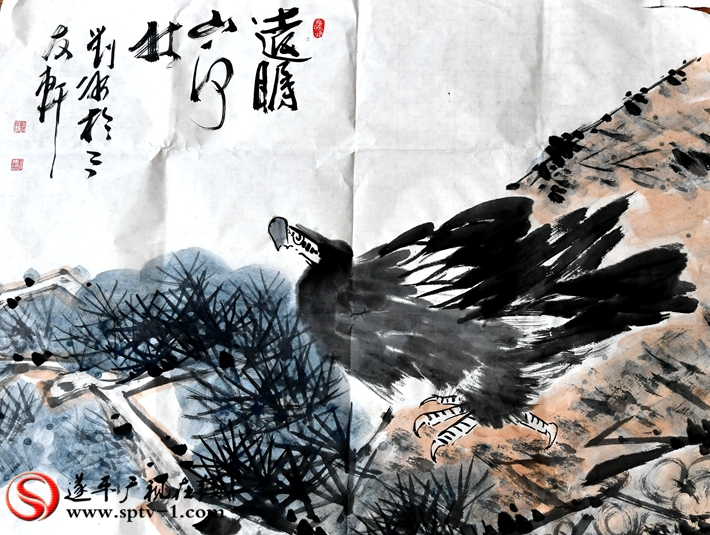 遠瞻
山河
壮
劉冰於三
友軒
遂平广视在线
www.sptv-1.com